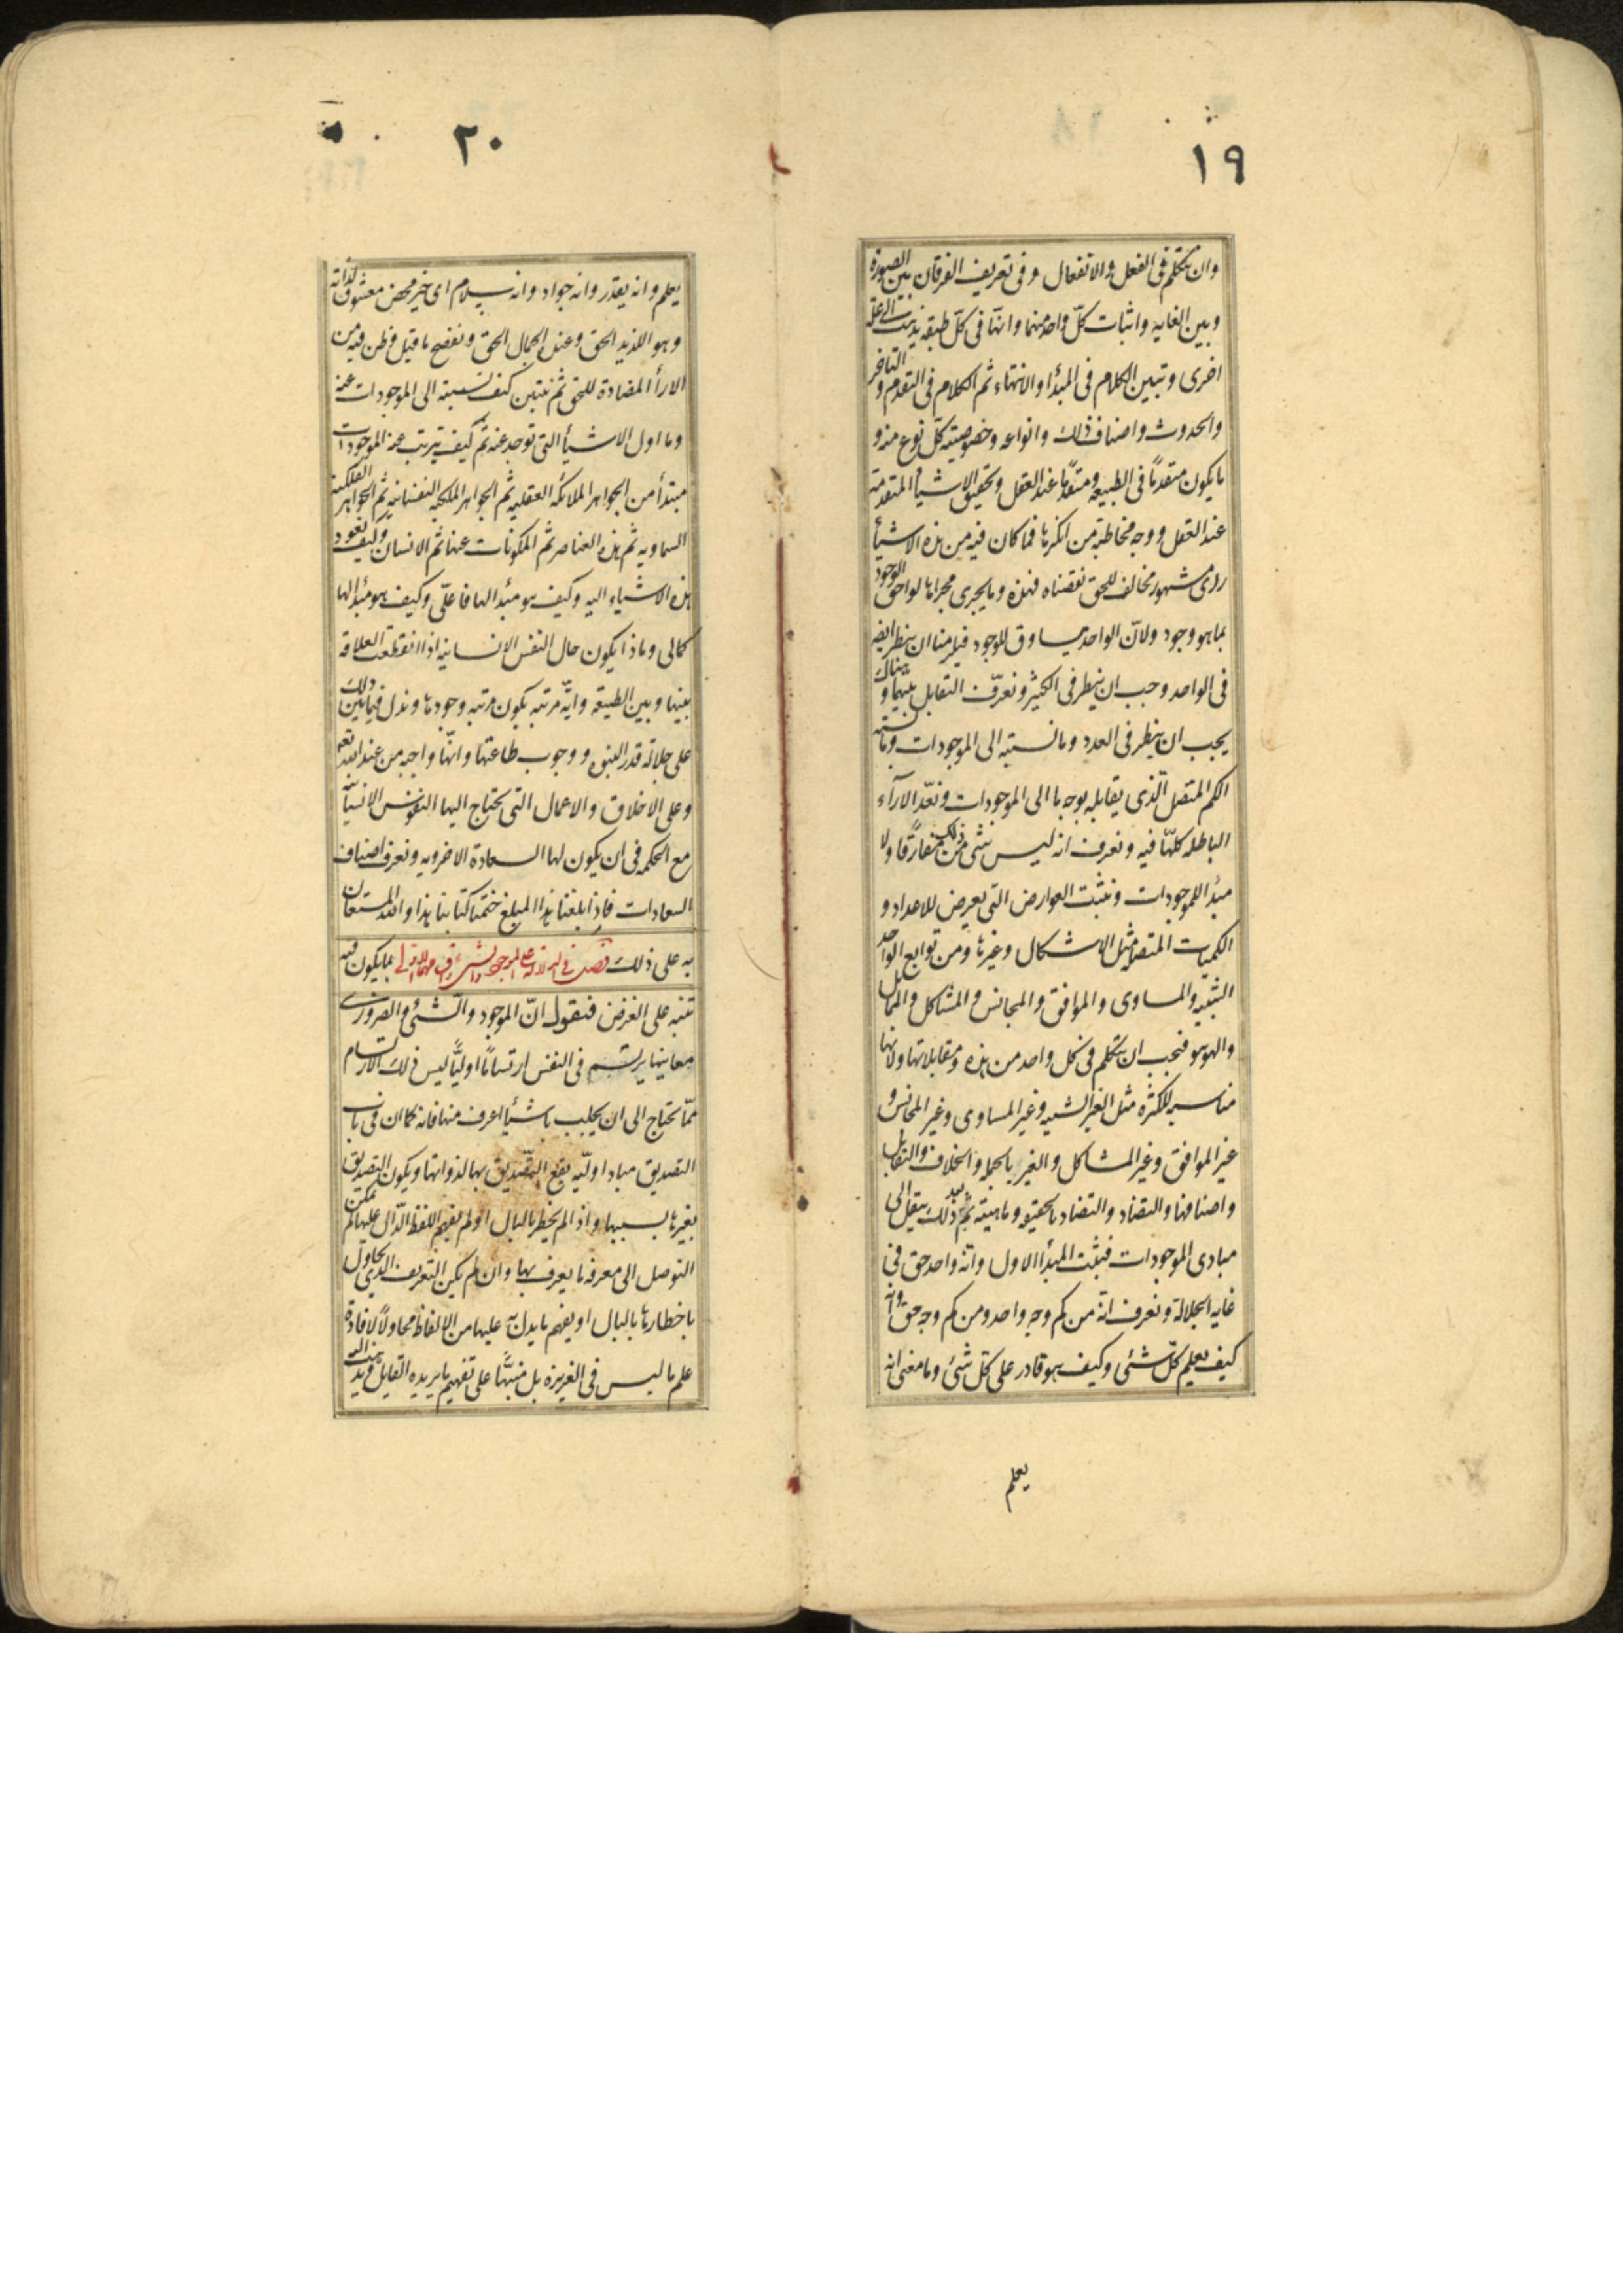 ١٩
وان نتكلم فى الفعل والانفعال وفى تعريف الفرقان بين الصورة
وبين الغايه واثبات كلّ واحد منهما وانهّا فى كلّ طبقه يذهب الى علة
اخرى وتبين الكلام فى المبدأ والانتهاء ثم الكلام فى التقدم والتاخر
والحدوث واصناف ذلك وانواعه وخصوصيته كلّ نوع منه و
ما يكون متقدمًا فى الطبيعه ومتقدّما عند العقل وتحقيق الاشيأ المتقدمة
عند العقل ووجه مخاطبة من انكرها فما كان فيه من هذه الاشيأ
راى مشهور مخالف للحق نقضناه فهذه وما يجرى مجراها لواحق الوجود
بما هو وجود ولانّ الواحد يساوق للوجود فيلزمنا ان ينظر ايضه
فى الواحد وجب ان ينظر فى الكثير ونعرّف التقابل بينهما وهناك
يجب ان ينظر فى العدد وما نسبته الى الموجودات وما نسبته
الكم المتصل الّذى يقابله بوجه ما الى الموجودات ونعدّ الآرآء
الباطله كلهّا فيه ونعرف انه ليس شئ من ذلك مفارقًا ولا
مبدٔ اللموجودات ونثبت العوارض التى يعرض للاعداد و
الكميّات المتصله مثل الاشكال وغيرها ومن توابع الواحد
الشبيه والمساوى والموافق والمجانس والمشاكل والمماثل
والهوهو فيجب ان نتكلم فى كل واحد من هذه ومقابلاتها ولانها
مناسبه للكثره مثل الغير الشبيه وغير المساوى وغير المجانس و
غير الموافق وغير المشاكل والغير بالجمله والخلاف والتقابل
واصنافها والتضاد والتضاد بالحقيقه وماهيته ثمّ بعد ذلك ينتقل الى
مبادى الموجودات فيثبت المبدأ الاول وانّه واحد حق فى
غايه الجلالة ونعرف انّه من كم وجه واحد ومن كم وجه حق وانه
كيف يعلم كلّ شئى وكيف هو قادر على كلّ شئ وما معنى انه
يعلم
٢٠
يعلم وانه يقدر وانه جواد وانه سلام اى خير محض معشوق لذاته
وهو اللذيذ الحق وعنده الجمال الحق ونفضح ما قيل وظن فيه من
الارأ المضادة للحق ثم نتبين كيف نسبته الى الموجودات عنه
وما اول الاشيأ التى توجد عنه ثم كيف يترتب عنه الموجودات
مبتدأ من الجواهر الملائكه العقليه ثم الجواهر الملكيه النفسانيه ثم الجواهر الفلكيه
السماويه ثم هذه العناصر ثم المكونات عنها ثم الانسان وكيف يعود
هذه الاشياء اليه وكيف هو مبدٔ الها فاعلّى وكيف هو مبدٔ الها
كمالى وماذا يكون حال النفس الانسانيه اذا انقطعت العلاقه
بينها وبين الطبيعه وايّه مرتبه يكون مرتبه وجودها وندل فيما بين ذلك
على جلالة قدر النبوه ووجوب طاعتها وانهّا واجبه من عند الله تعه
وعلى الاخلاق والاعمال التى يحتاج اليها النفوس الانسيّا
مع الحكمه فى ان يكون لها السعادة الاخرويه ونعرف اصناف
السعادات فاذا بلغنا هذا المبلغ ختمنا كتابنا هذا والله المستعان
به على ذلك فصل فى الدلاله على الموجود والشئ واقسامهما الاول بما يكون فيه
تنبه على الغرض فنقول انّ الموجود والشئى والضرورى
معاينها يرتسم فى النفس ارتسامًا اوليًّا ليس ذلك الارتسام
ممّا يحتاج الى ان يجلب باشيأ اعرف منها فانه كما ان فى باب
التصديق مبادا اوليّه يقع التصّديق بها لذواتها ويكون التصديق
بغيرها بسببها واذا لم يخطر بالبال او لم يفهم اللفظ الدّال عليها لم يمكن
التوصل الى معرفه ما يعرف بها وان لم يكن التعريف الذى يحاول
باخطارها بالبال او يفهم ما يدل به عليها من الالفاظ محاولاً لافادة
علم ما ليس فى الغريزه بل منبهًّا على تفهيم ما يريده القايل ويذهب اليه